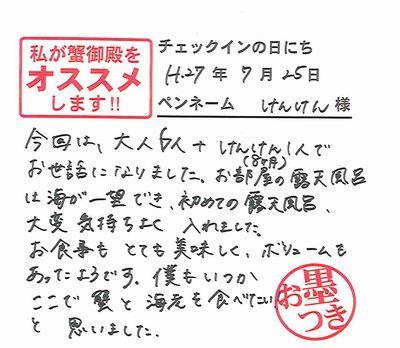 私が蟹御殿を
オススメ
します!!
チェックインの日にち
H.27 年 7 月 25 日
ペンネーム けんけん 様
今回は、大人6人+けんけん1人で
(8ヶ月)
お世話になりました。お部屋の露天風呂
は海が一望でき、初めての露天風呂、
大変気持ちよく入れました。
お食事もとても美味しく、ボリュームも
あったようです。僕もいつか
ここで蟹と海老を食べてたい
と思いました。
お墨つき